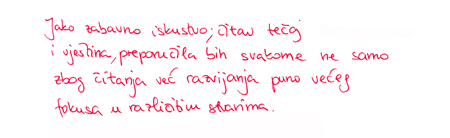 Jako zabavno iskustvo; čitav tečaj
i vještina, preporučila bih svakome ne samo
zbog čitanja već razvijanja puno većeg
fokusa u različitim stvarima.